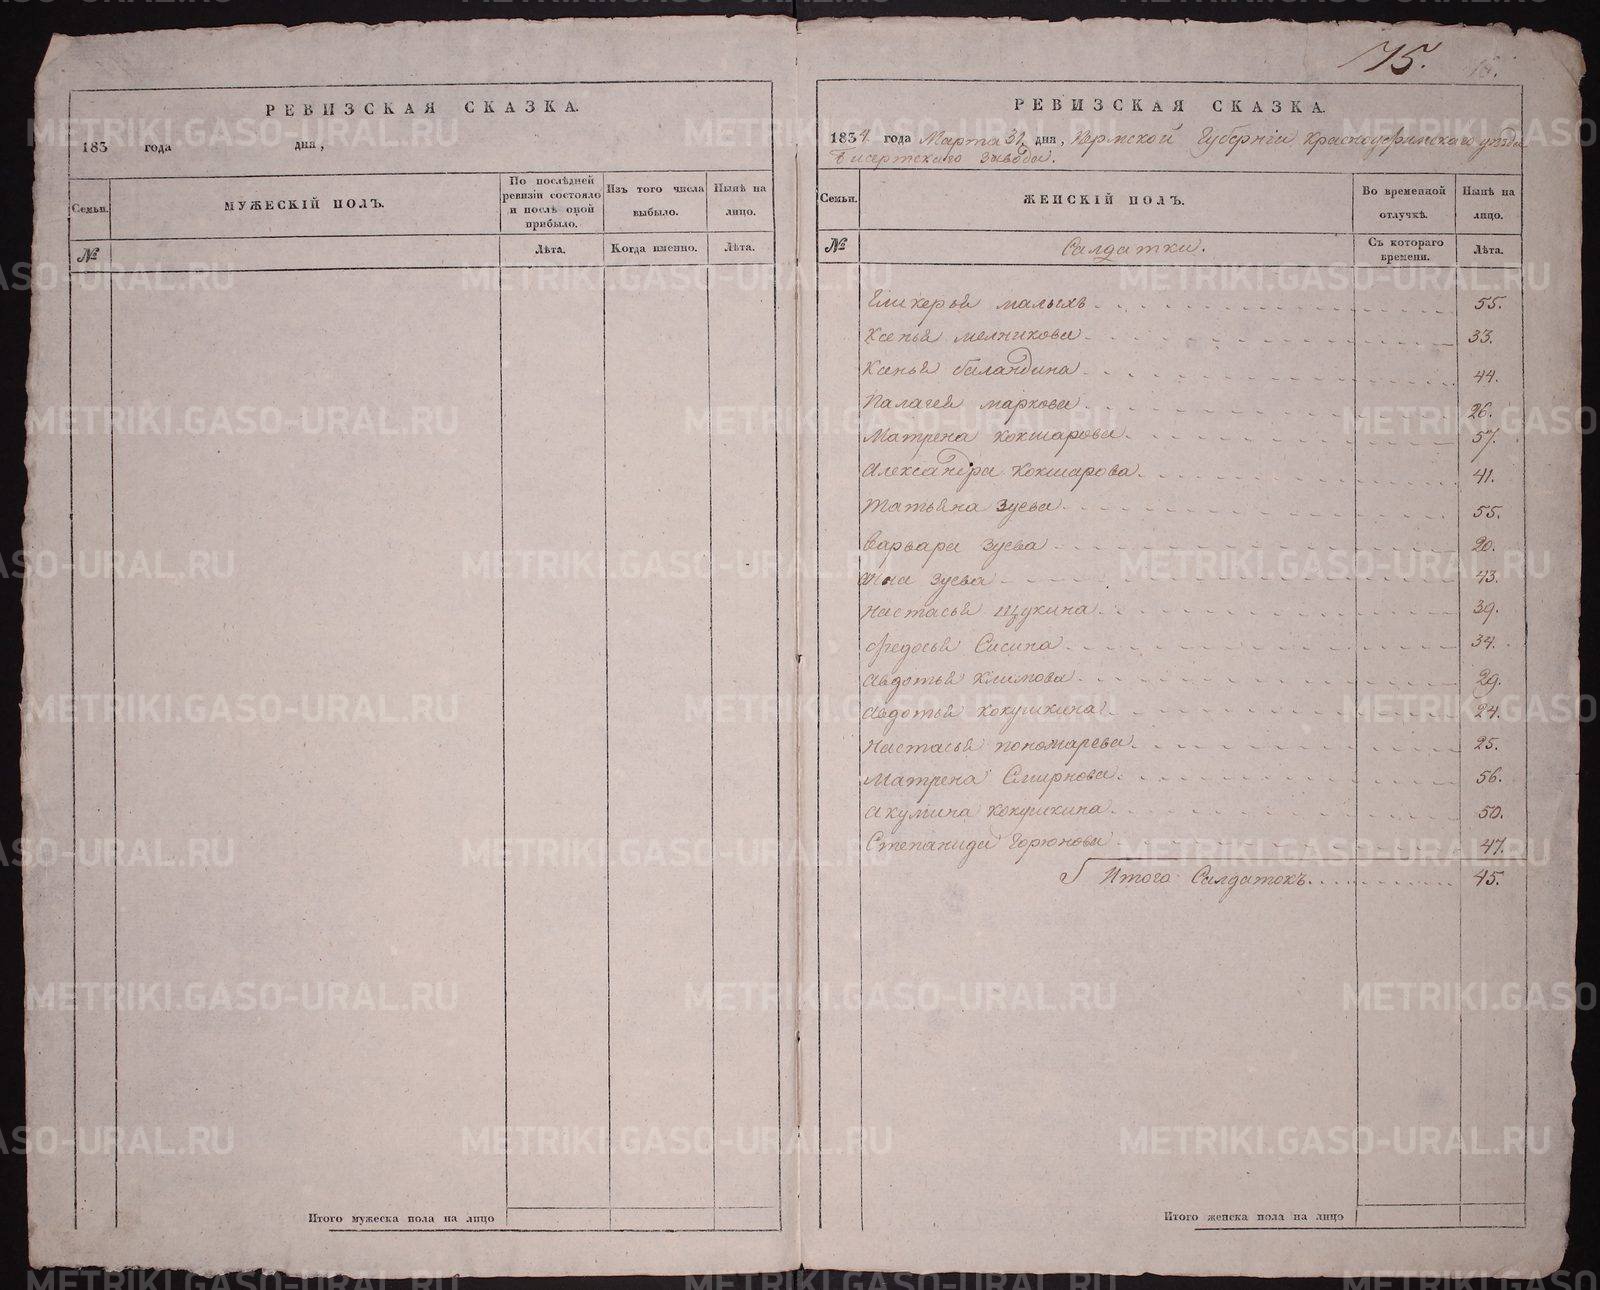 РЕВИЗСКАЯ СКАЗКА.
183 года дня,
Семьи.
МУЖЕСКІЙ ПОЛЪ.
По послѣдней ревизіи состояло и послѣ оной прибыло.
Изъ того числа выбыло.
Нынѣ на лицо.
№
Лѣта.
Когда именно.
Лѣта.
Итого мужеска пола на лицо
75.
РЕВИЗСКАЯ СКАЗКА.
1834 года Марта 31 дня, Пермской Губерніи Красноуфимскаго уѣзда
Бисертскаго завода.
Семьи.
ЖЕНСКІЙ ПОЛЪ.
Во временной отлучкѣ.
Нынѣ на лицо.
№
Салдатки.
Съ котораго времени.
Лѣта.
Гликерья малыхъ 55.
Ксенья мелникова 33.
Ксенья баландина 44.
Палагея маркова 26.
Матрена кокшарова 57.
Александра кокшарова 41.
Татьяна Зуева 55.
Варвара Зуева 20.
Анна Зуева 43.
Настасья щукина 39.
Федосья Сисина 34.
Авдотья климова 29.
Авдотья кокушкина 24.
Настасья пономарева 25.
Матрена Смирнова 56.
Акулина кокушкина 50.
Степанида Горюнова 47.
Итого Салдатокъ 45.
Итого женска пола на лицо
METRIKI.GASO-URAL.RU